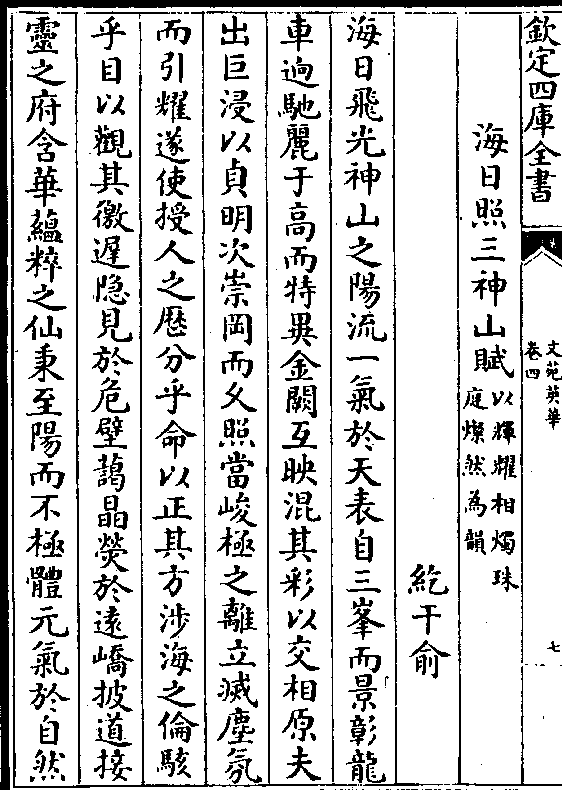 欽定四庫全書
文苑英華
卷四
七
海日照三神山賦以輝耀相燭珠
庭燦然為韻
紇干俞
海日飛光神山之陽流一氣於天表自三峯而景彰龍
車逈馳麗于高而特異金闕互映混其彩以交相原夫
出巨浸以貞明次崇岡而久照當峻極之離立滅塵氛
而引耀遂使授人之厯分乎命以正其方涉海之倫駭
乎目以觀其徼遲隐見於危壁藹晶熒於遠嶠披道接
靈之府含華蘊粹之仙秉至陽而不極體元氣於自然